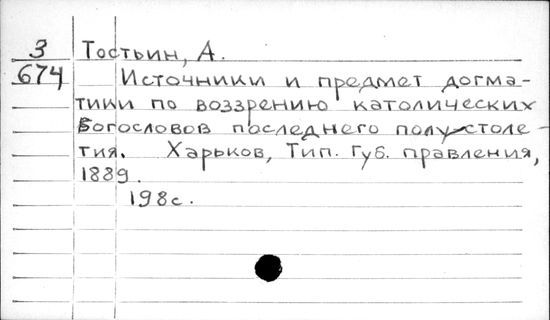 3 Тостьин, А.
674 Источники и предмет догма-
тики по воззрению католических
богословов последнего полустоле-
тия. Харьков, Тип. Губ. правления,
1889.
198с.